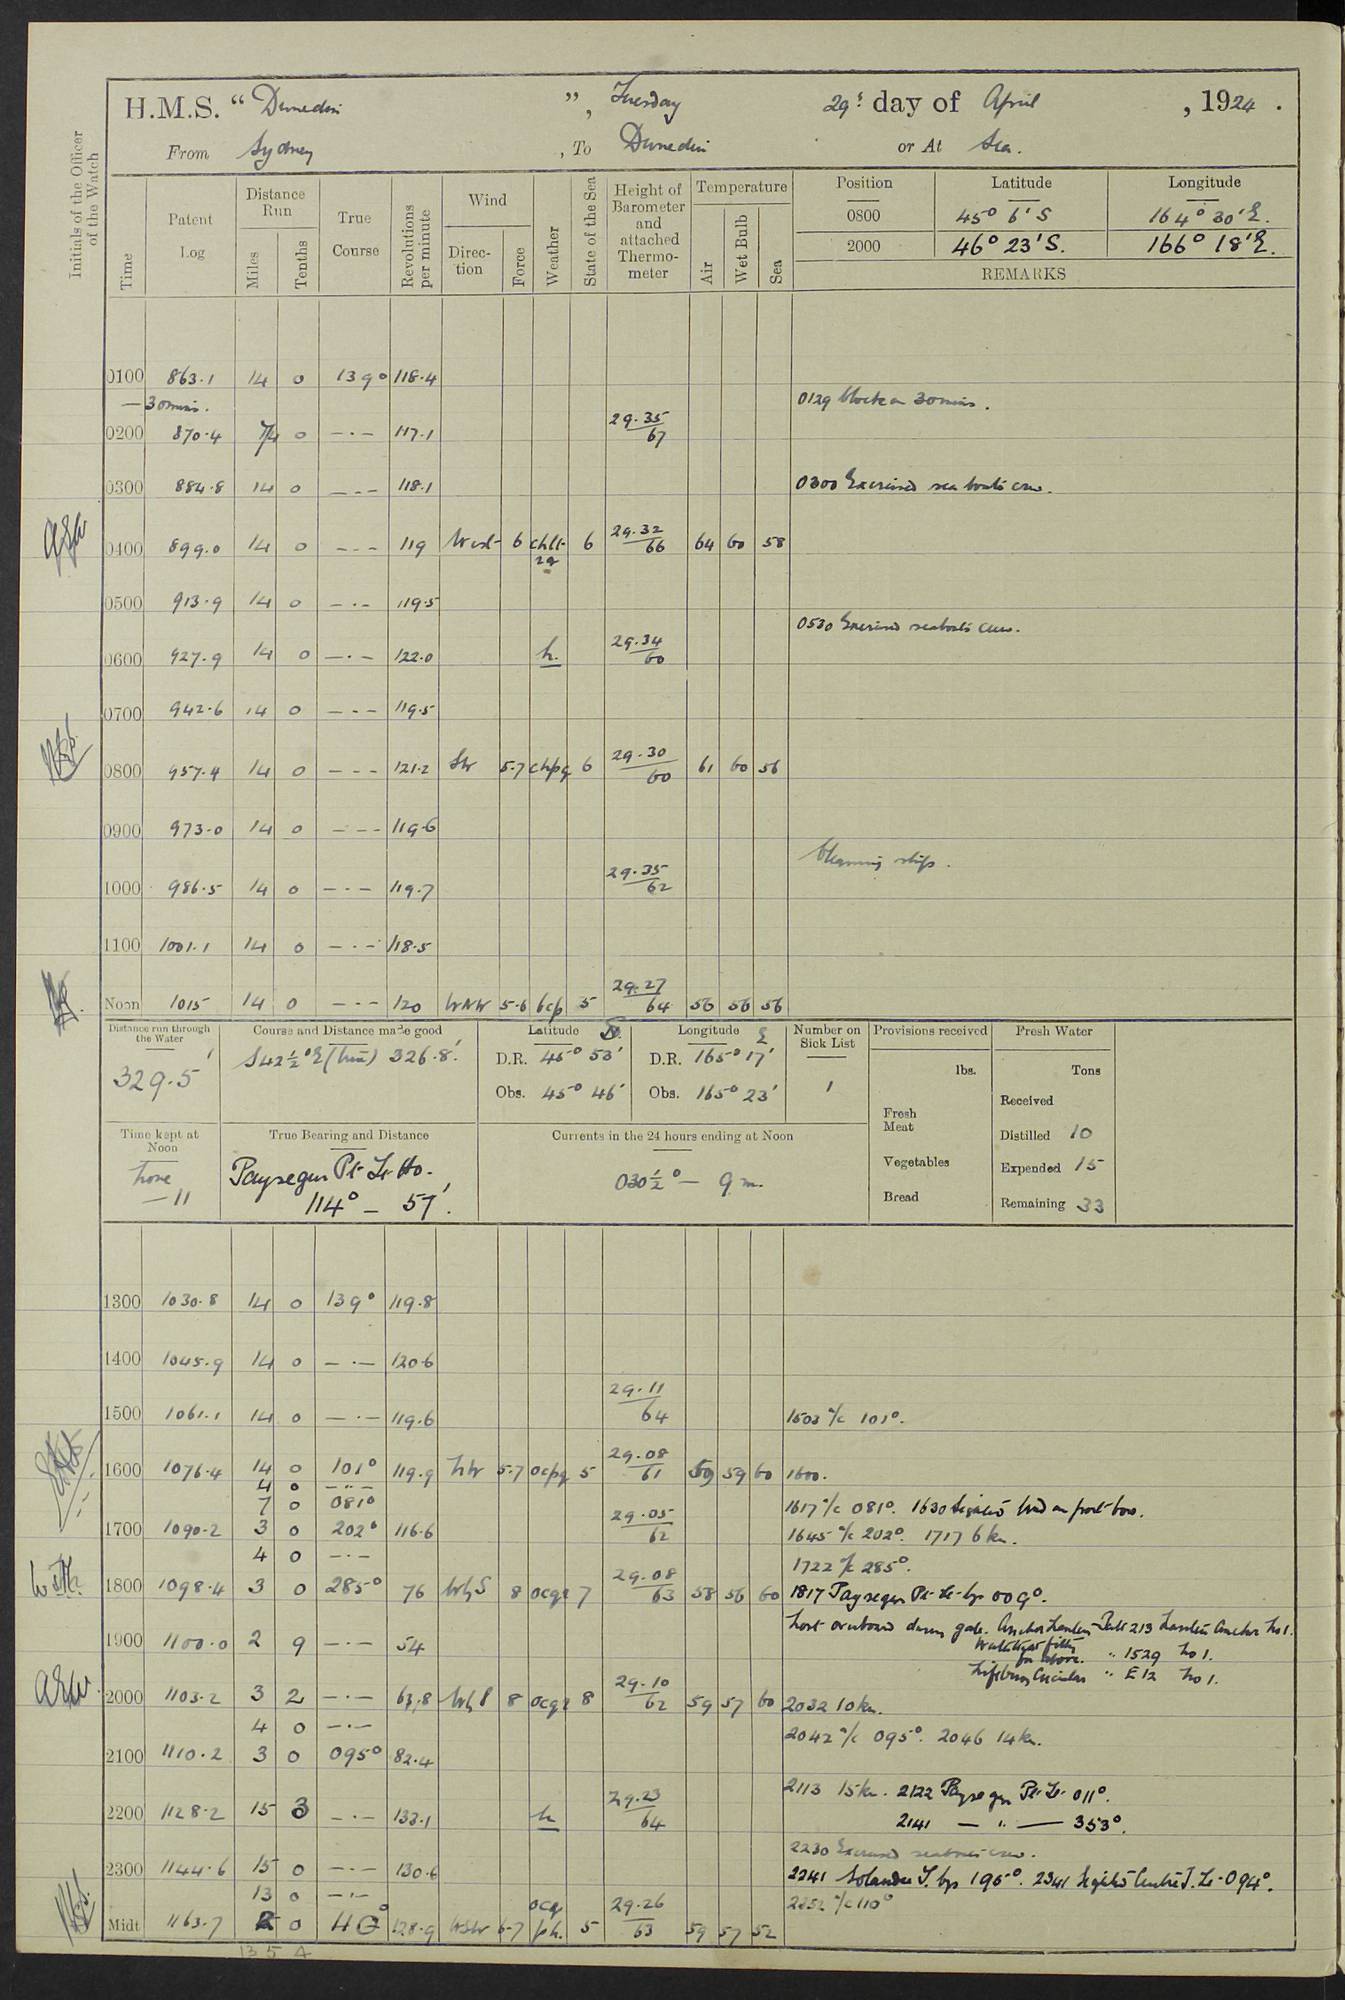 H.M.S. “ Dunedin ”, Tuesday 29th day of April, 1924.
From Sydney, To Dunedin or At Sea.
Initials of the Officer of the Watch
Time
Patent Log
Distance Run
Miles
Tenths
True Course
Revolutions per minute
Wind
Direction
Force
Weather
State of the Sea
Height of Barometer and attached Thermometer
Temperature
Air
Wet Bulb
Sea
Position Latitude Longitude
0800 45° 6' S 164° 30' E.
2000 46° 23' S. 166° 18' E.
REMARKS
0100 863.1 14 0 139° 118.4
— 30 mins. 0129 Clock on 30 mins.
0200 870.4 7 0 —·— 117.1 29.35/67
0300 884.8 14 0 —·— 118.1 0300 Exercised sea boats crew.
0400 899.0 14 0 —·— 119 West 6 6 29.32/66 64 60 58
0500 913.9 14 0 —·— 119.5
0530 Exercised seaboats crew.
0600 927.9 14 0 —·— 122.0 h. 29.34/60
0700 942.6 14 0 —·— 119.5
0800 957.4 14 0 —·— 121.2 SW 5-7 chpq 6 29.30/60 61 60 56
0900 973.0 14 0 —·— 119.6
Cleaning ship.
1000 986.5 14 0 —·— 119.7 29.35/62
1100 1001.1 14 0 —·— 118.5
Noon 1015 14 0 —·— 120 WNW 5-6 bcp 5 29.27/64 56 56 56
Distance run through the Water
329.5'
Course and Distance made good
S 42½° E (true) 326.8'.
Latitude S.
D.R. 45° 53'
Obs. 45° 46'
Longitude E
D.R. 165° 17'
Obs. 165° 23'
Number on Sick List
1
Provisions received
lbs.
Fresh Meat
Vegetables
Bread
Fresh Water
Tons
Received
Distilled 10
Expended 15
Remaining 33
Time kept at Noon
Zone
—11
True Bearing and Distance
Paysegur Pt. Lt. Ho.
114° — 57'.
Currents in the 24 hours ending at Noon
030½° — 9 m.
1300 1030.8 14 0 139° 119.8
1400 1045.9 14 0 —·— 120.6
1500 1061.1 14 0 —·— 119.6 29.11/64 1503 a/c 101°.
1600 1076.4 14 0 101° 119.9 5-7 ocpq 5 29.08/61 59 59 60 1600.
4 0 —·—
7 0 081° 1617 a/c 081°. 1630 Sighted land on port bow.
1700 1090.2 3 0 202° 116.6 29.05/62 1645 a/c 202°. 1717 6 kn.
4 0 —·— 1722 a/c 285°.
1800 1098.4 3 0 285° 76 WbyS 8 ocqr 7 29.08/63 58 56 60 1817 Paysegur Pt. Lt. bg 009°.
Lost overboard during gale. Anchor Lantern Patt 213 Lantern Anchor No 1.
1900 1100.0 2 9 —·— 54 Watertight fitting for above. " 1529 No 1.
Lifebuoy Circular " E12 No 1.
2000 1103.2 3 2 —·— 63.8 WbyS 8 ocqr 8 29.10/62 59 57 60 2032 10 kn.
4 0 —·— 2042 a/c 095°. 2046 14 kn.
2100 1110.2 3 0 095° 82.4
2113 15 kn. 2122 Paysegur Pt. Lt. 011°.
2200 1128.2 15 3 —·— 133.1 h 29.23/64 2141 — " — 353°.
2230 Exercised seaboats crew.
2300 1144.6 15 0 —·— 130.6 2241 Solander I. bg 195°. 2341 Sighted Centre I. Lt. 094°.
13 0 —·— 2352 a/c 110°
Midt 1163.7 2 0 110° 128.9 WSW 6-7 ocq ph. 5 29.26/63 59 57 52
13 5 4